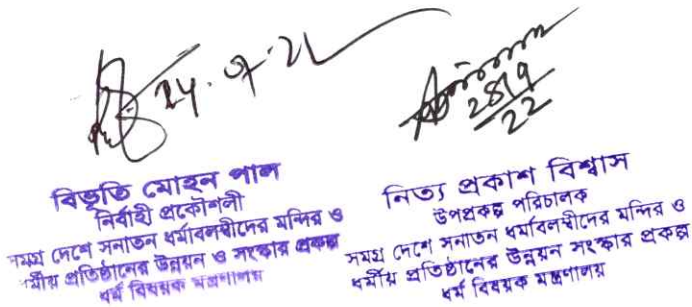 ২৮.৭.২২
বিভূতি মোহন পাল
নির্বাহী প্রকৌশলী
সমগ্র দেশে সনাতন ধর্মাবলম্বীদের মন্দির ও
ধর্মীয় প্রতিষ্ঠানের উন্নয়ন ও সংস্কার প্রকল্প
ধর্ম বিষয়ক মন্ত্রণালয়
নিত্য প্রকাশ বিশ্বাস
উপপ্রকল্প পরিচালক
সমগ্র দেশে সনাতন ধর্মাবলম্বীদের মন্দির ও
ধর্মীয় প্রতিষ্ঠানের উন্নয়ন সংস্কার প্রকল্প
ধর্ম বিষয়ক মন্ত্রণালয়